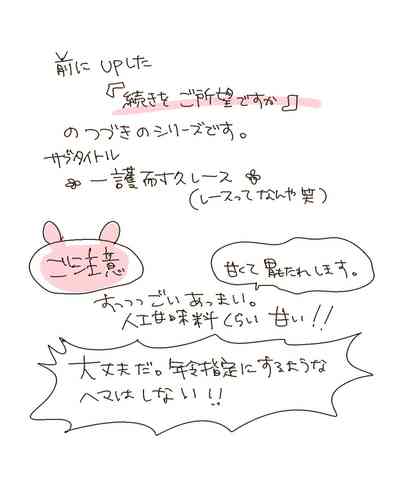 前に UPした
『続きを ご所望ですか』
のつづきのシリーズです。
サブタイトル
一護耐久レース
(レースってなんや笑)
ご注意
甘くて胃もたれします。
すっっっごいあっまい。
人工甘味料くらい 甘い!!
大丈夫だ。年令指定にするような
ヘマはしない!!